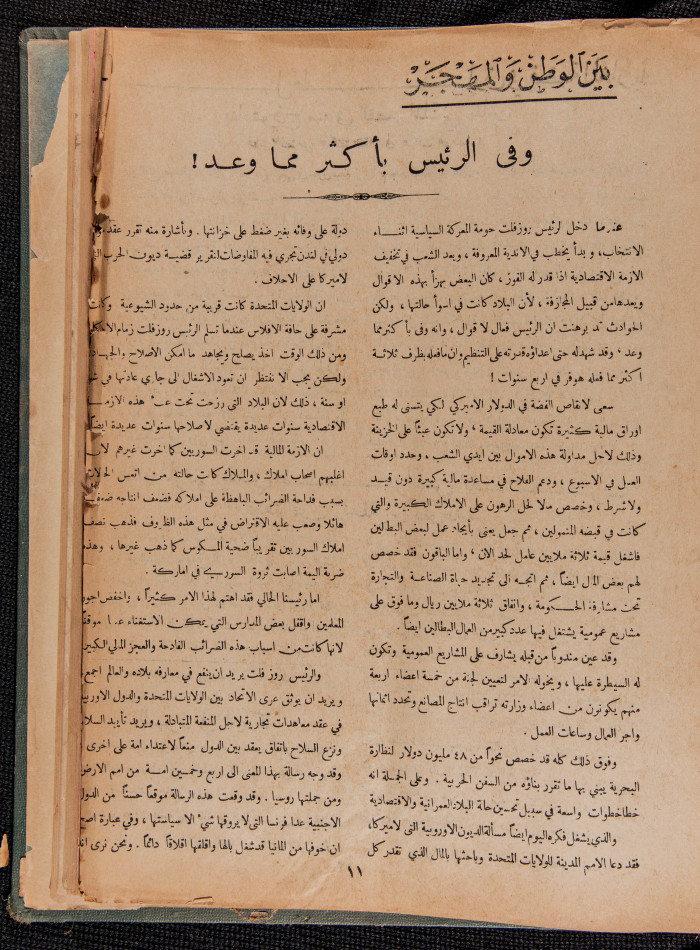 بين الوطن والمهجر
وفى الرئيس بأكثر مما وعد !
عندما دخل لرئيس روزفلت حومة المعركة السياسية اثنـاء
الانتخاب، وبدأ يخطب في الاندية المعروفة ، ويعد الشعب في تخفيف
الازمة الاقتصادية اذا قدر له الفوز ، كان البعض يهزأ بهذه الاقوال
ويعدها من قبيل المجازفة ، لأن البلاد كانت في اسوأ حالتها ، ولكن
الحوادث قد برهنت ان الرئيس فعال لا قوال ، وانه وفى بأكثر مما
وعد ، وقد شهد له حتى اعداؤه قدرته على التنظيم وان ما فعله بظرف ثلاثـة
اكثر مما فعله هوفر في اربع سنوات !
سعى لانقاص الفضة في الدولار الاميركي لكي يتسنى له طبع
اوراق مالية كثيرة تكون معادلة القيمة ، ولا تكون عبئاً على الخزينة
وذلك لاجل مداولة هذه الاموال بين ايدي الشعب ، وحدد اوقات
العمل في الاسبوع ، ودعم الفلاح في مساعدة مالية كبيرة دون قيـد
ولا شرط ، وخصص مالا لحل الرهون على الاملاك الكبيرة والتي
كانت في قبضة المتمولين ، ثم جعل يعنى بأيجاد عمل لبعض البطالين
فاشغل قيمة ثلاثة ملايين عامل لحد الان ، واما الباقون فقد خصص
لهم بعض المال ايضاً ، ثم اتجه الى تجديد حياة الصناعـة والتجارة
تحت مشارفة الحـكومة ، وانفاق ثلاثة ملايين ريال وما فوق على
مشاريع عمومية يشتغل فيها عدد كبير من العمال البطالين ايضاً .
وقد عين مندوباً من قبله يشارف على المشاريع العمومية وتكون
له السيطرة عليها ، ويخوله الامر لتعيين لجنة من خمسة اعضاء اربعة
منهم يكونون من اعضاء وزارته تراقب انتاج المصانع وتحدد اثمانها
واجر العمال وساعات العمل .
وفوق ذلك كله قد خصص نحواً من ٤٨ مليون دولار لنظارة
البحرية يبني بها ما تقرر بناؤه من السفن الحربية . وعلى الجملة انه
خطا خطوات واسعة في سبيل تحسين حالة البلاد العمرانية والاقتصادية
والذي يشغل فكره اليوم ايضاً مسألة الديون الاوروبية التى لاميركا ،
فقد دعا الامم المدينة للولايات المتحدة وباحثها بالمال الذي تقدر كل
دولة على وفائه بغير ضغط على خزانتها . وبأشارة منه تقرر عقد
دولي في لندن تجري فيه المفاوضات لتقرير قضيـة ديون الحرب
لاميركا على الاحلاف .
ان الولايات المتحدة كانت قريبة من حدود الشيوعية وكانت
مشرفة على حافة الافلاس عندما تسلم الرئيس روزفلت زمام
ومن ذلك الوقت اخذ يصلح ويجاهد ما امكن الاصلاح
ولكن يجب الا ننتظر ان تعود الاشغال الى جاري عادتها في
او سنة ، ذلك لان البلاد التى رزحت تحت عبء هذه الازمـة
الاقتصادية سنوات عديدة يقتضي لاصلاحها سنوات عديدة ايضاً
ان الازمة المالية قد اخرت السوريين كما اخرت غيرهم لان
اغلبهم اصحاب املاك ، والملاك كانت حالته من اتعس الحالات
بسبب فداحة الضرائب الباهظة على املاكه فضعف انتاجه ضعفـ
هائلا وصعب عليه الاقتراض في مثل هذه الظروف فذهب نصف
املاك السوريين تقريباً ضحية المكوس كما ذهب غيرها ، وهذه
ضربة اليمة اصابت ثروة السوريـين في اماركة .
اما رئيسنا الحالي فقد اهتم لهذا الامر كثيراً ، واخفض اجور
المعلمين واقفل بعض المدارس التي يمكن الاستغناء عنها موقتـ
لانها كانت من اسباب هذه الضرائب الفادحة والعجز المالي الكبير
والرئيس روزفلت يريد ان ينفع في معارفه بلاده والعالم اجمع
ويريد ان يوثق عرى الاتحاد بين الولايات المتحدة والدول الاوربية
في عقد معاهدات تجارية لاجل المنفعة المتبادلة ، ويريد تأييد السلام
ونزع السلاح باتفاق يعقد بين الدول منعاً لاعتداء امة على اخرى
وقد وجه رسالة بهذا المعنى الى اربع وخمسين امـة من امم الارض
ومن جملتها روسيا . وقد وقعت هذه الرسالة موقعاً حسناً من الدول
الاجنبية عدا فرنسا التى لا يروقها شيء الا سياستها ، وفي عبارة اصح
ان خوفها من المانيا قد شغل بالها واقلقها اقلاقاً دائماً . ونحن نرى
١١